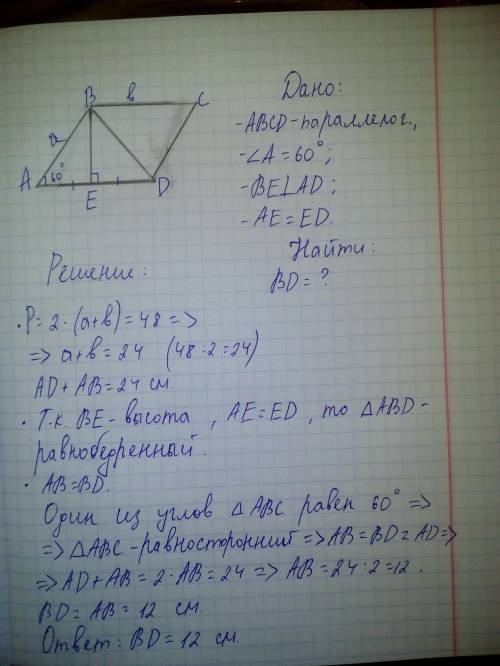 B в C
a
A 60° E D
Дано:
-ABCD-параллелог.,
-∠A=60°;
-BE⊥AD;
-AE=ED.
Найти:
BD=?
Решение:
·P=2·(a+в)=48=>
=> a+в=24 (48:2=24)
AD+AB=24 см.
· Т.к. BE-высота, AE=ED, то △ABD-
равнобедренный.
· AB=BD.
Один из углов △ABC равен 60° =>
=> △ABC-равносторонний => AB=BD=AD=>
=> AD+AB=2·AB=24 => AB=24:2=12.
BD=AB=12 см.
Ответ: BD=12 см.